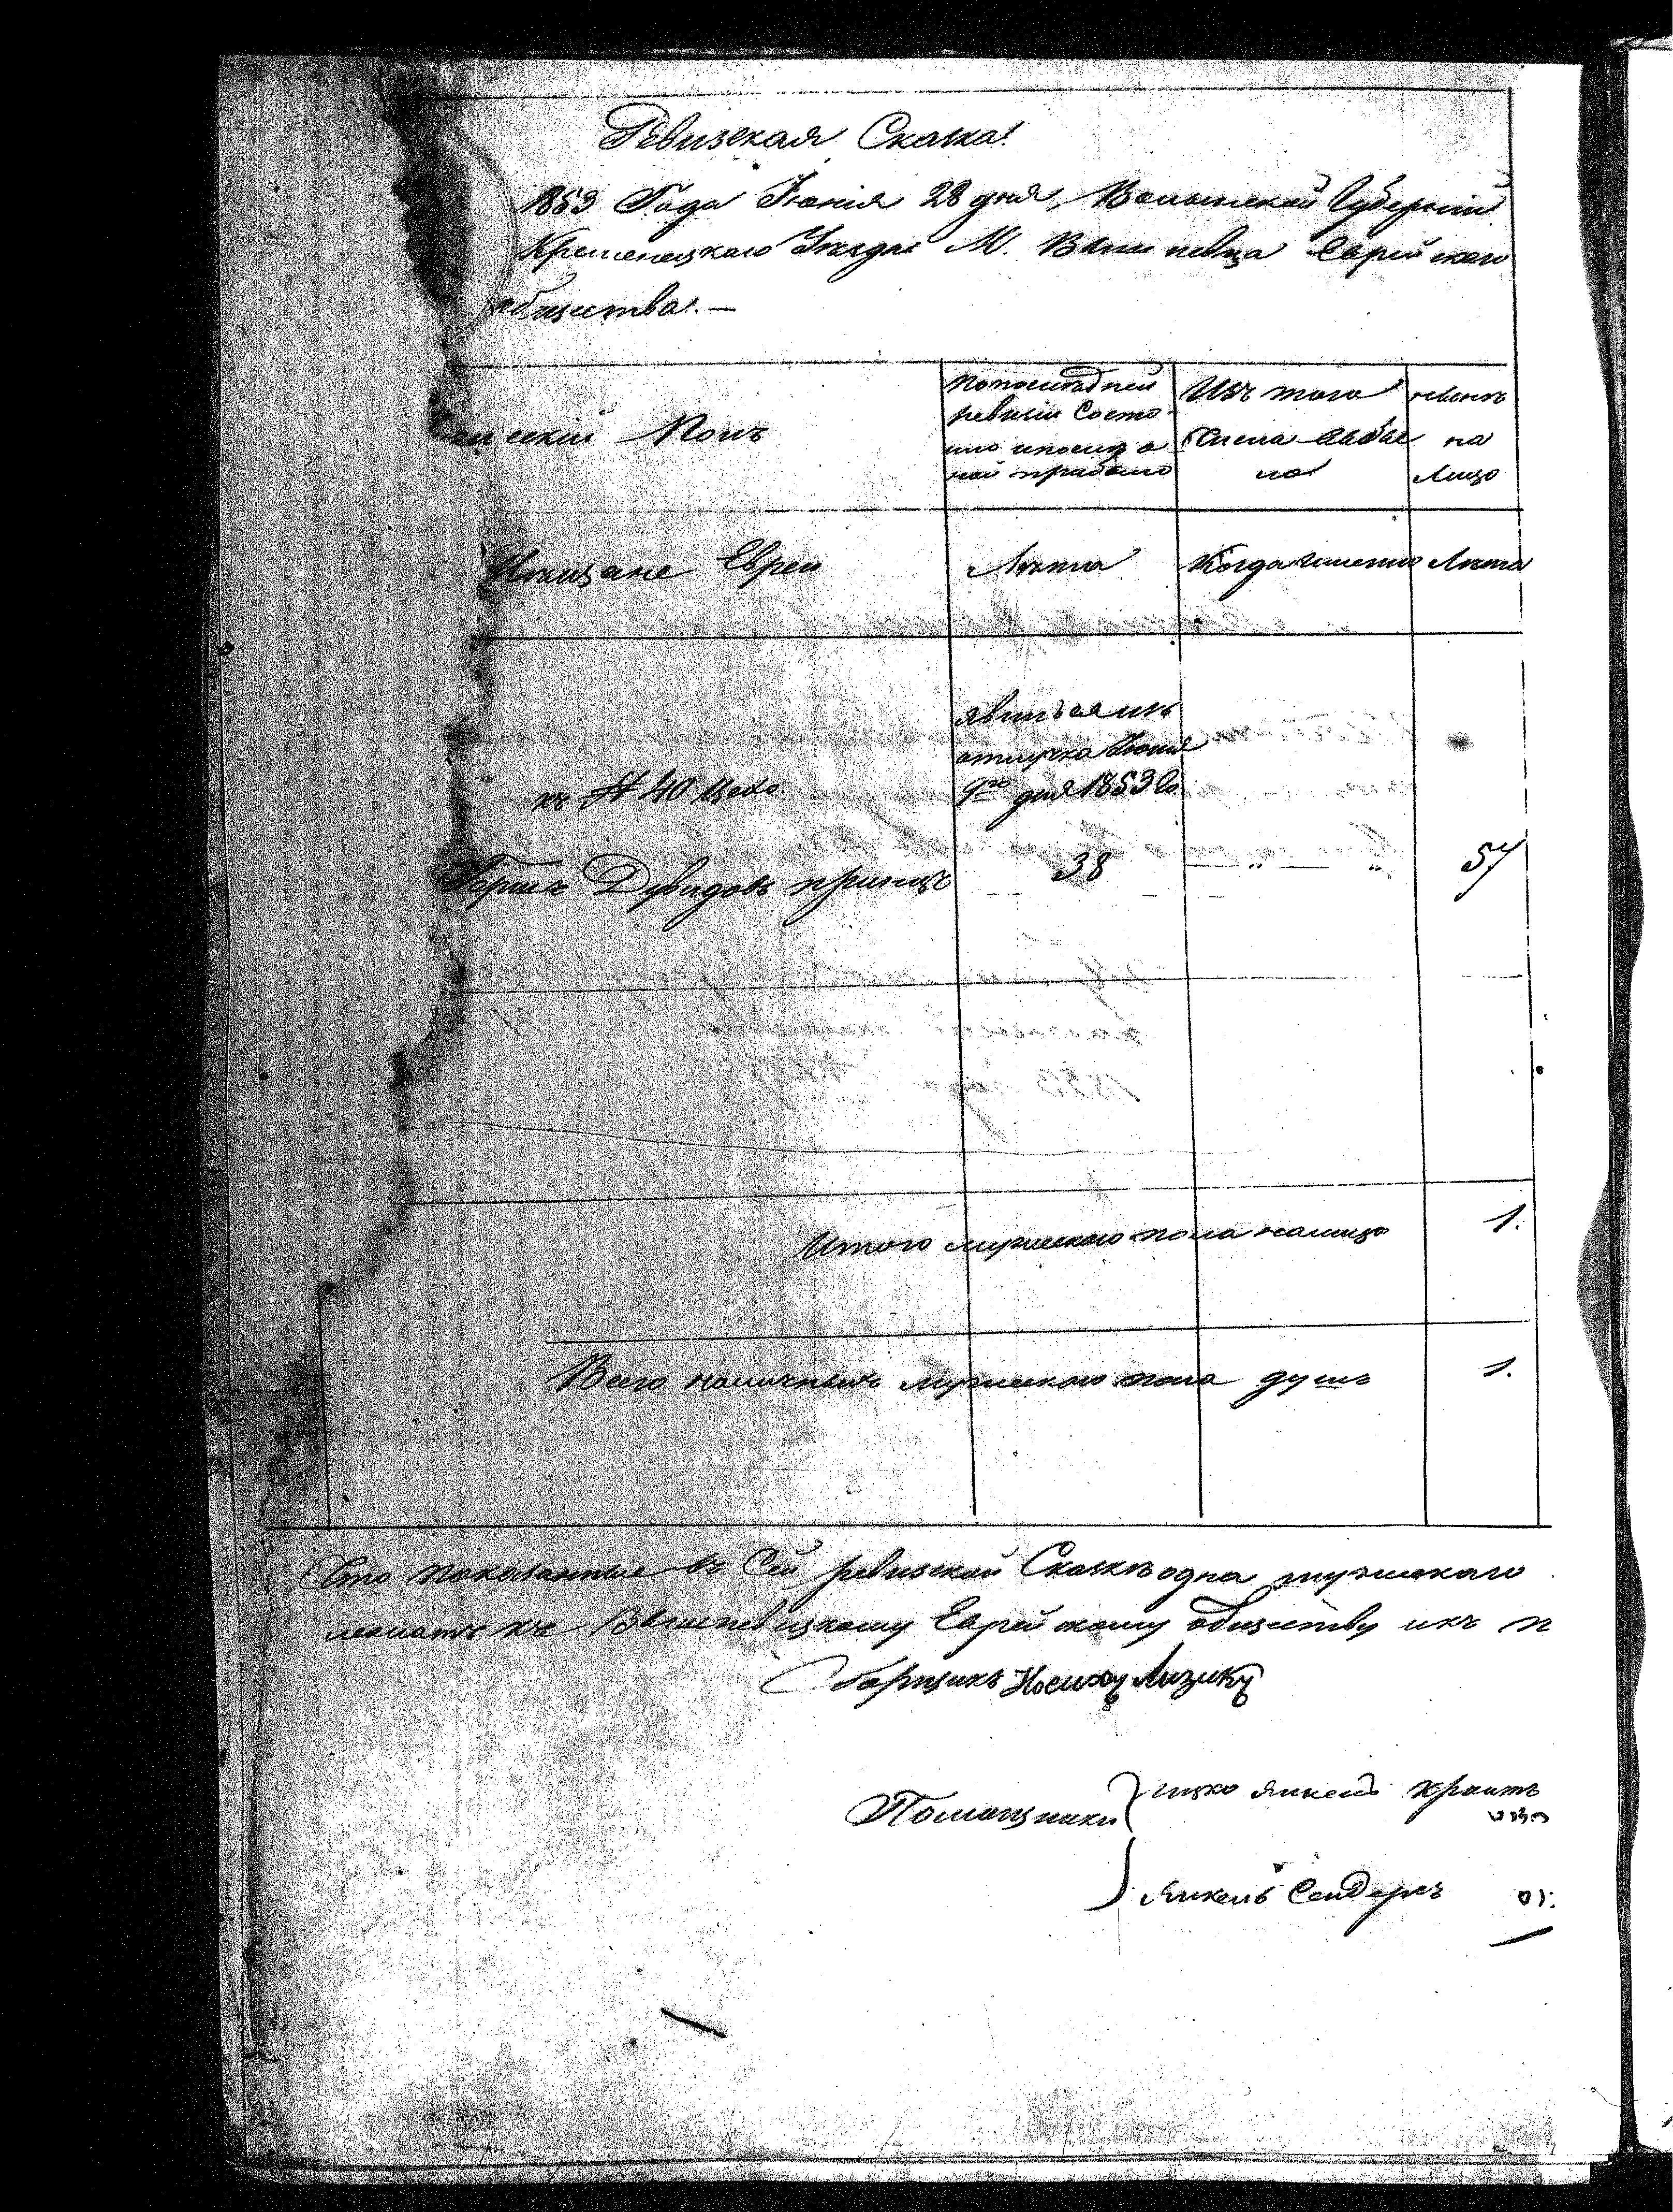 Ревизская Сказка!
1853 Года Июня 28 дня, Волынской Губернии
Кременецкаго Уезда М. Вишневца Еврейскаго
общества. —
Полъ
По последней ревизіи состояло и после оной прибыло
Изъ того числа выбыло
ныне на лицо
Мещане Евреи
Лета
Когда именно
Лета
явился изъ
отлучка Июня
9го дня 1853 го
къ № 40 Цеха
Гершъ Дувидовъ принцъ
38
57
Итого мужескаго пола налицо 1.
Всего наличныхъ мужескаго пола душъ 1.
Что показанные въ Сей ревизской Сказке одна мужескаго
къ Вишневецкому Еврейскому обществу
Сборщикъ
Помощники
Янкель
Янкель Сендеръ